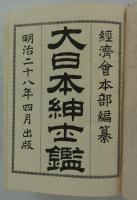 經濟會本部編纂
大日本紳士鑑
明治二十八年四月出版